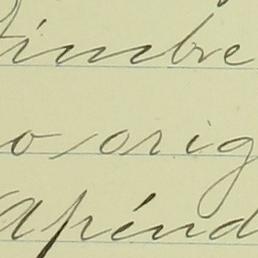 imbre
o orig
Apénd